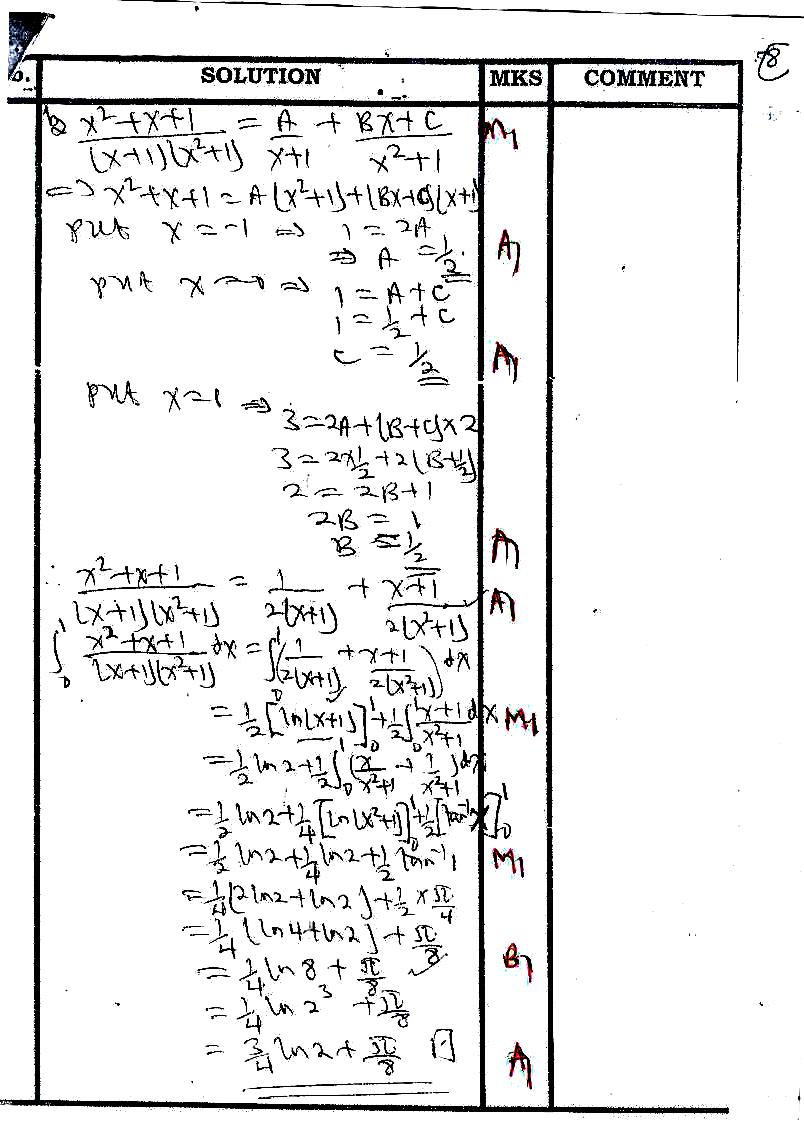 SOLUTION MKS COMMENT
x²+x+1/(x+1)(x²+1) = A/x+1 + Bx+C/x²+1 M1
=> x²+x+1 = A(x²+1)+(Bx+C)(x+1)
put x=-1 => 1 = 2A
=> A = 1/2. A1
put x=0 => 1 = A+C
1 = 1/2 + C
C = 1/2 A1
put x=1 => 3=2A+(B+C)x2
3=2x1/2+2(B+1/2)
2 = 2B+1
2B = 1
B = 1/2 A1
∴ x²+x+1/(x+1)(x²+1) = 1/2(x+1) + x+1/2(x²+1) A1
∫₀¹ x²+x+1/(x+1)(x²+1) dx = ∫₀¹(1/2(x+1) + x+1/2(x²+1)) dx
= 1/2[ln(x+1)]₀¹ + 1/2∫₀¹ x+1/x²+1 dx M1
= 1/2 ln2 + 1/2∫₀¹(x/x²+1 + 1/x²+1)dx
= 1/2 ln2 + 1/4[ln(x²+1)]₀¹ + 1/2[tan⁻¹x]₀¹
= 1/2 ln2 + 1/4 ln2 + 1/2 tan⁻¹1 M1
= 1/4(2ln2+ln2) + 1/2 x π/4
= 1/4(ln4+ln2) + π/8
= 1/4 ln8 + π/8 B1
= 1/4 ln2³ + π/8
= 3/4 ln2 + π/8 A1